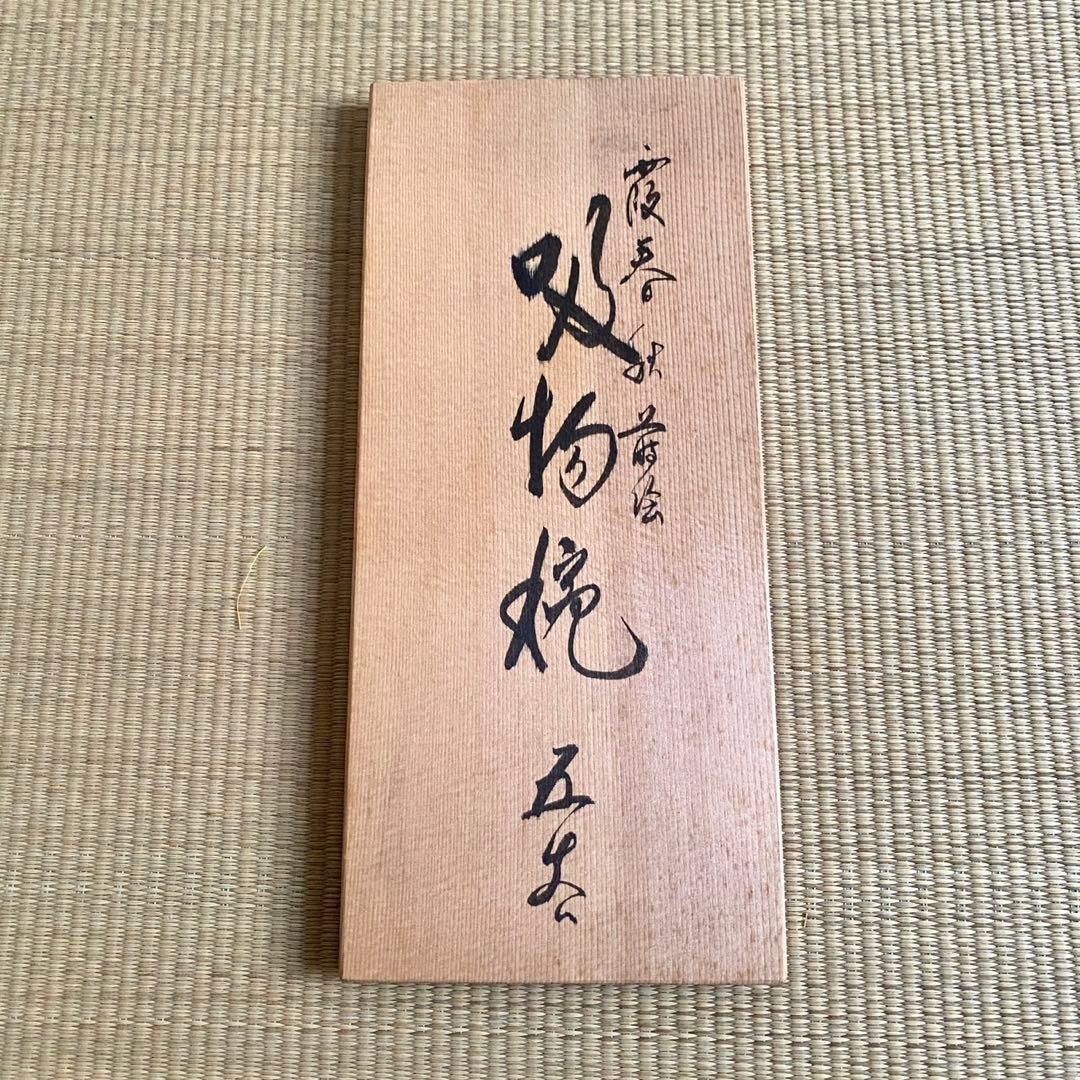 霞春秋蒔絵
吸物椀 五客